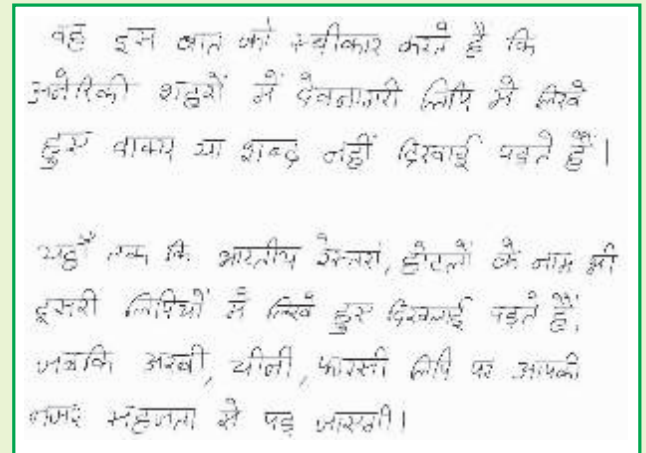 वह इस बात को स्वीकार करते हैं कि
अमेरिकी शहरों में देवनागरी लिपि में लिखे
हुए वाक्य या शब्द नहीं दिखाई पड़ते हैं।
यहाँ तक कि भारतीय रेस्तरां, होटलों के नाम भी
दूसरी लिपियों में लिखे हुए दिखलाई पड़ते हैं,
जबकि अरबी, चीनी, फारसी लिपि पर आपकी
नजर सहजता से पड़ जाएगी।